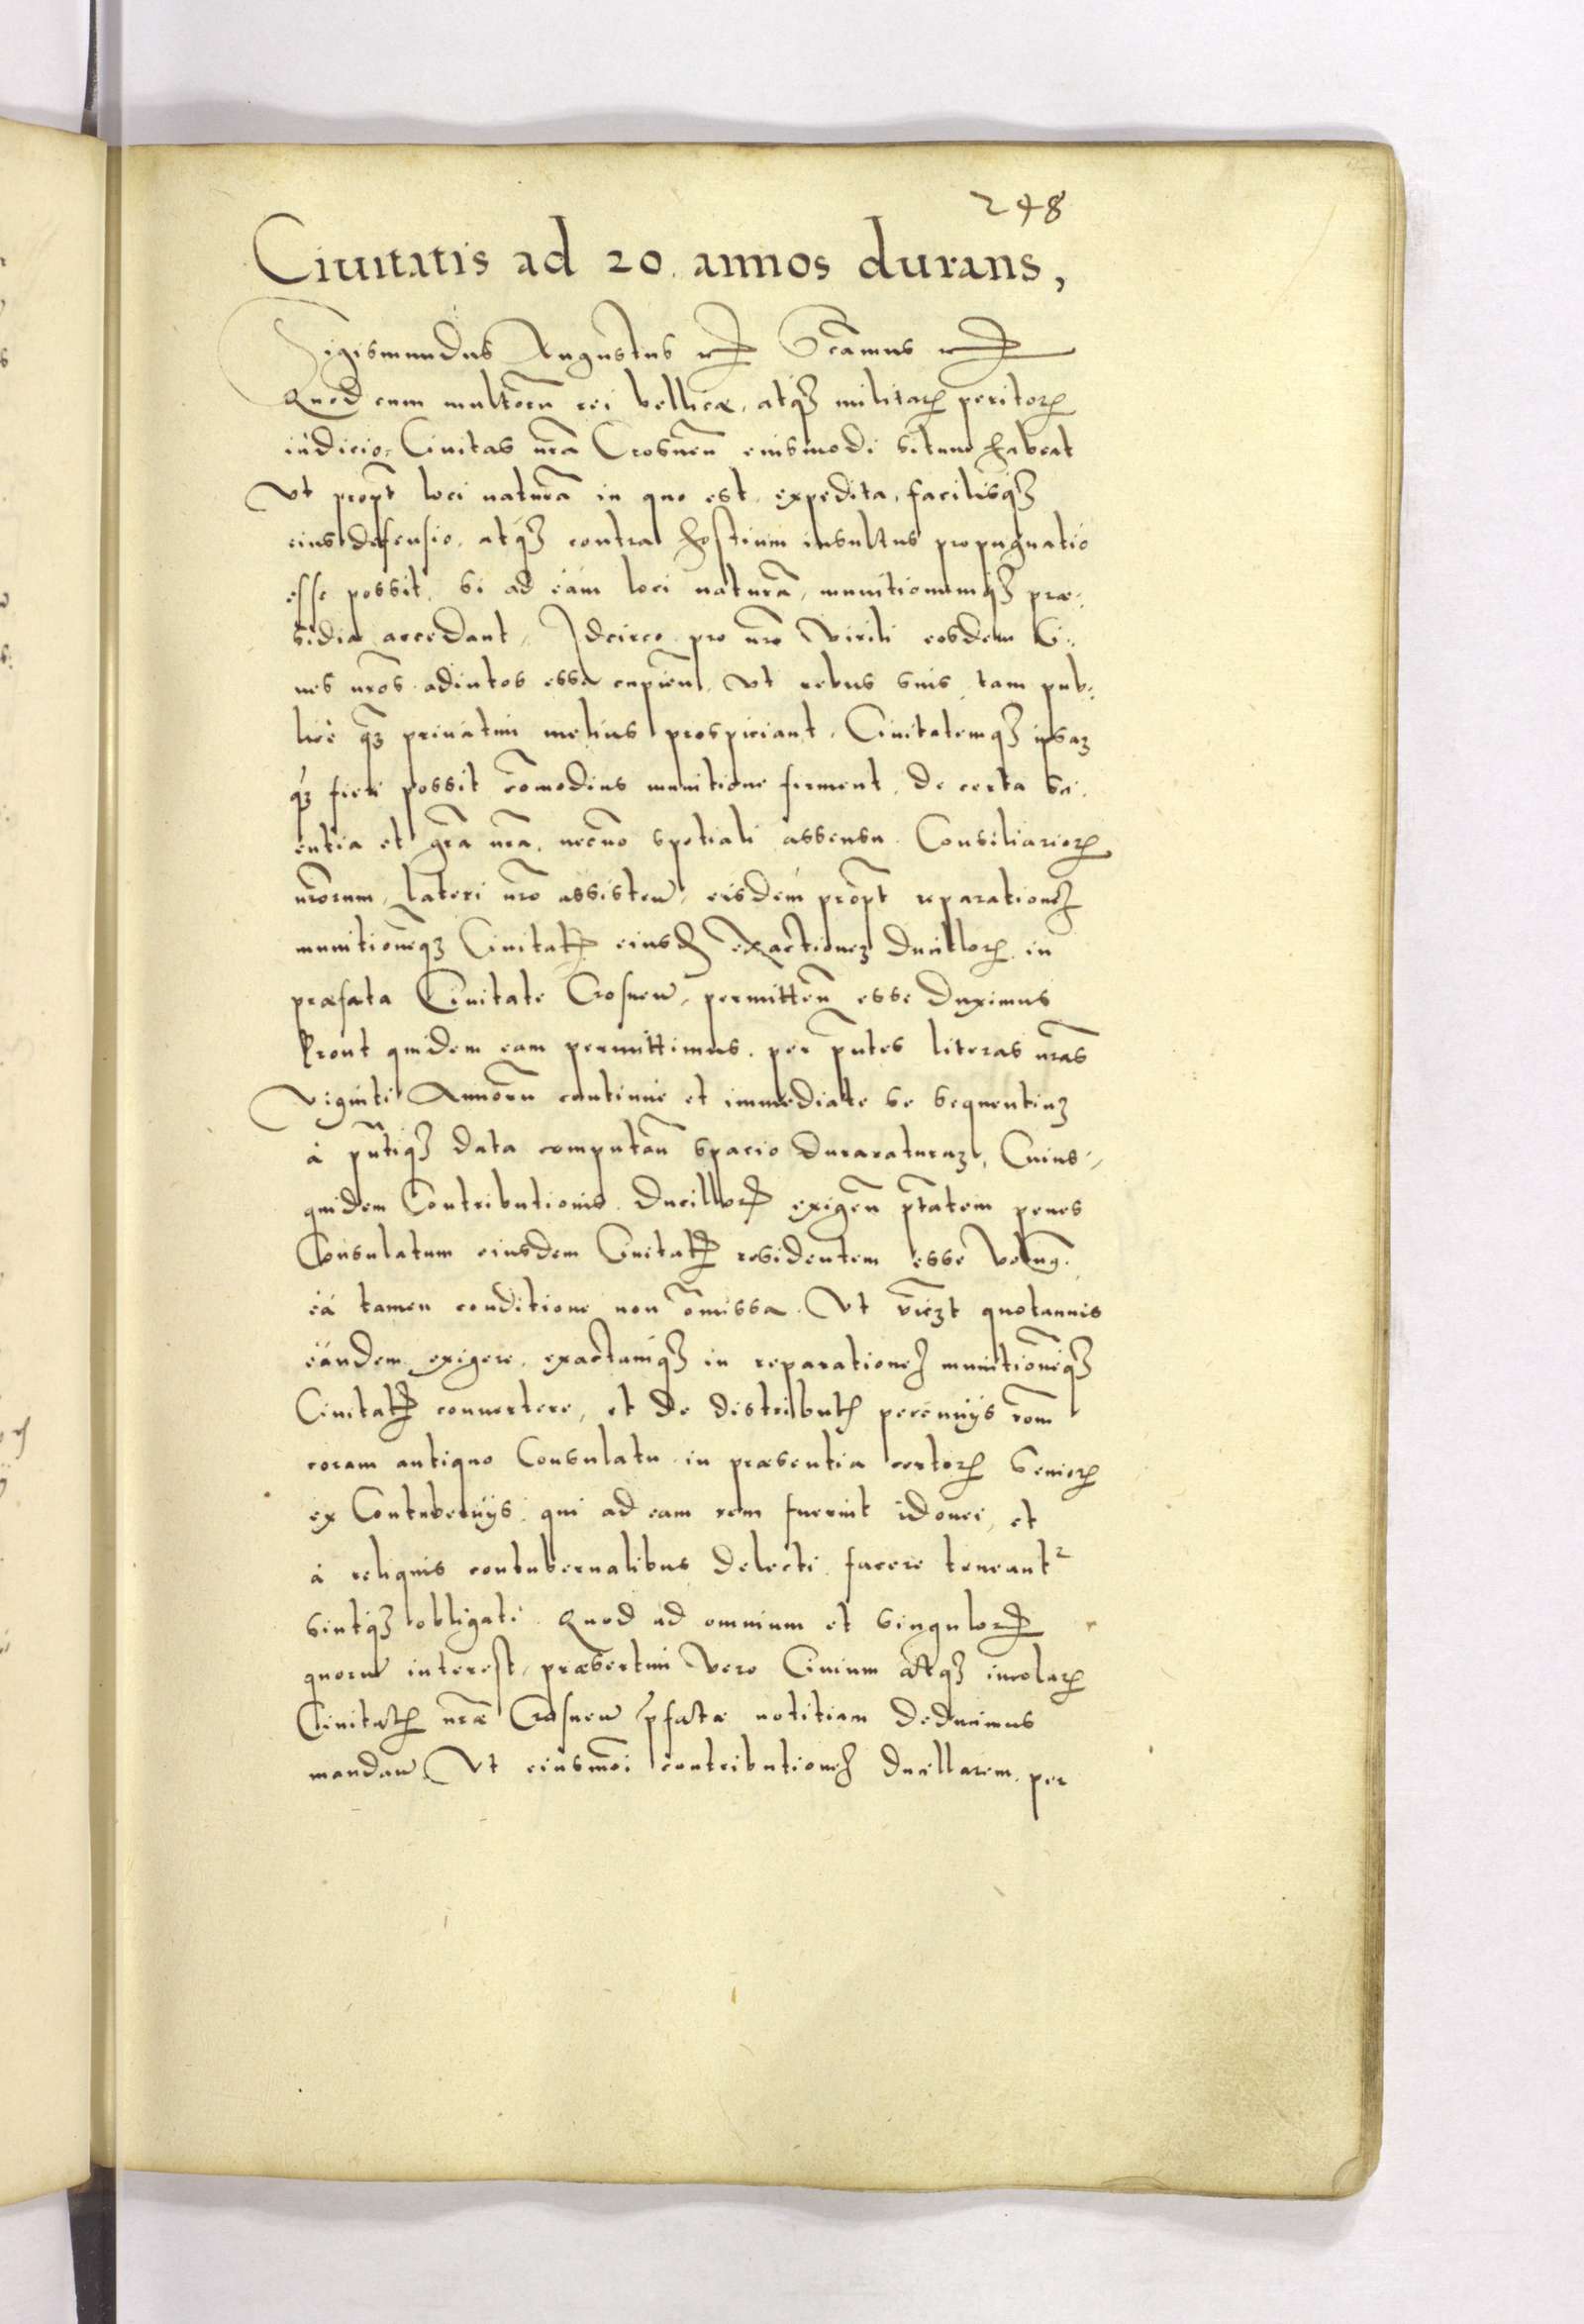 248
Ciuitatis ad 20. annos durans,
Sigismundus Augustus etc Sc̃amus etc
Quod cum multorũ rei bellicæ, atqꝫ militarꝭ peritorꝭ
iudicio, Ciuitas nr̃a Crosneñ eiusmodi situm habeat
Vt propt̃ loci naturã in quo est, expedita, facilisqꝫ
eius defensio, atqꝫ contra hostium insultus propugnatio
esse possit, si ad eam loci naturã, munitionumqꝫ præ:
sidia accedant, Idcirco pro nr̃o virili eosdem Ci:
ues nr̃os adiutos esse cupien̄, Vt rebus suis tam pub:
licè qꝫ priuatim melius prospiciant, Ciuitatemqꝫ ipsaꝫ
qꝫ fieri possit com̃odius munitione firment, de certa sci:
entia et gr̃a nr̃a, necnõ spetiali assensu Consiliariorꝭ
nr̃orum, lateri nr̃o assisteñ, eisdem propt̃ reparationeꝫ
munitionẽqꝫ Ciuitatꝭ eiusdꝭ exactioneꝫ ducillorꝭ in
præfata Ciuitate Crosneñ, permitteñ esse duximus
Prout quidem eam permittimus, per pñtes literas nr̃as
Viginti Annorũ continuè et immediate se sequentiuꝫ
à pñtiqꝫ data computañ spacio duraraturaꝫ, Cuius,
quidem Contributionis ducillorꝭ exigeñ pt̃atem penes
Consulatum eiusdem Ciuitatꝭ residentem esse volumꝰ.
eà tamen conditione non om̃issa. Vt quotannis
eandem exigere, exactamqꝫ in reparationeꝫ munitionẽqꝫ
Ciuitatꝭ conuertere, et de distributꝭ pecunijs rõem
coram antiquo Consulatu in præsentia certorꝭ seniorꝭ
ex Contubernijs, qui ad eam rem fuerint idonei, et
à reliquis contubernalibus delecti facere teneant²
sintqꝫ obligati. Quod ad omnium et singulorꝭ
quorũ interest, præsertim vero Ciuium atqꝫ incolarꝭ
Ciuitatꝭ nr̃æ Crosneñ p̃fatæ notitiam deducimus
mandañ. Vt eiusmõi contributioneꝫ ducillarem per